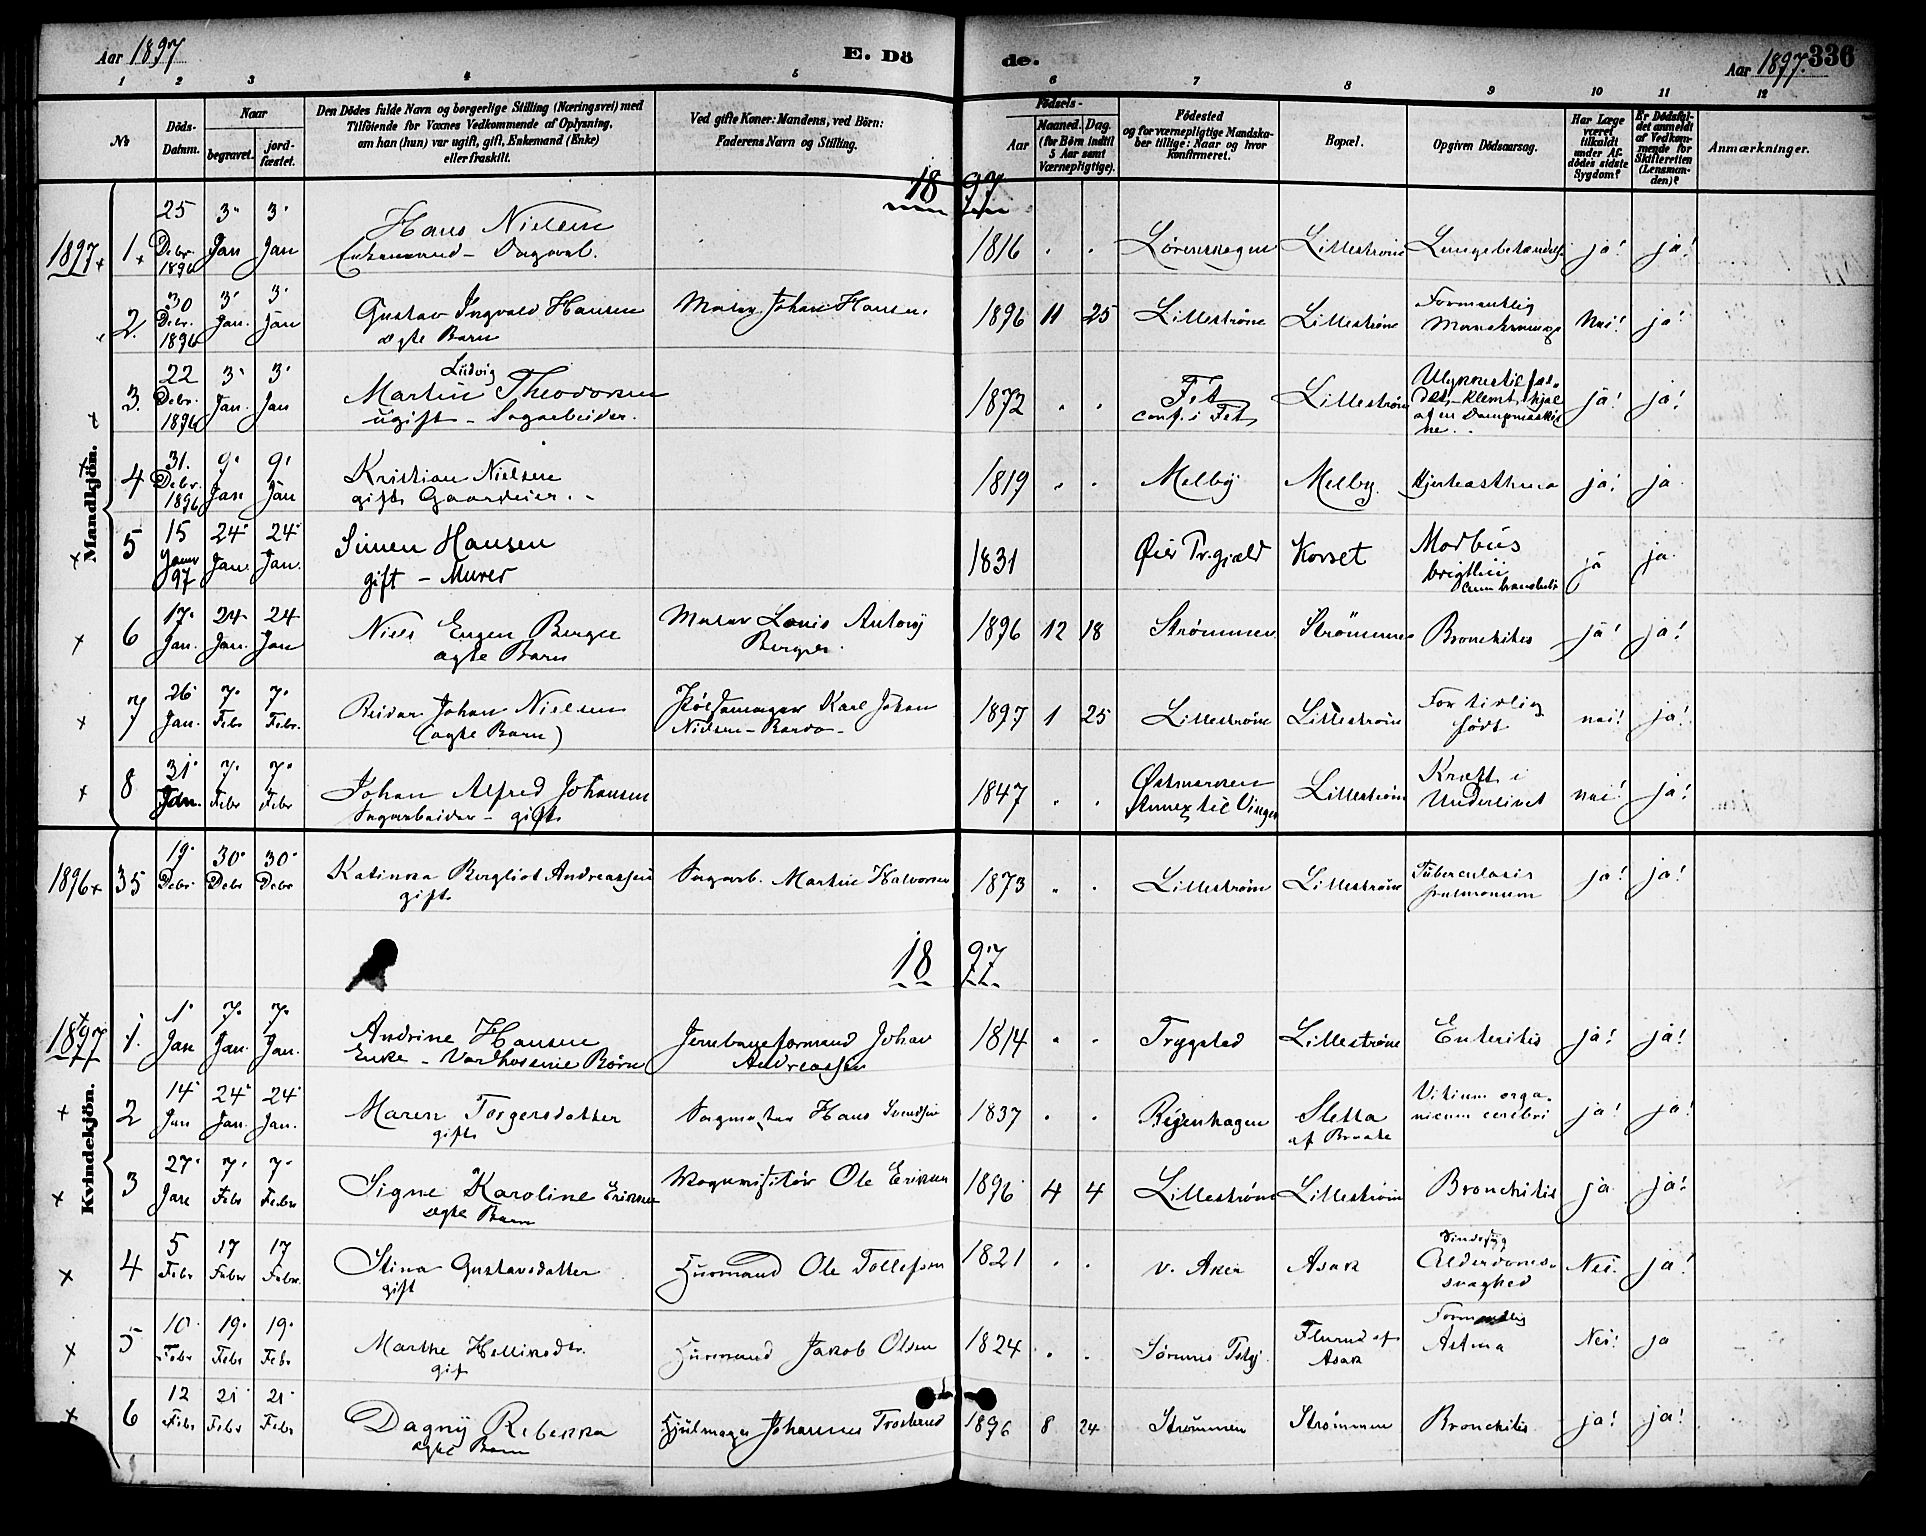 Aar 1897
E. Dö
de.
Aar 1897.
336
1 2 3 4 5 6 7 8 9 10 11 12
No
Döds-Datum.
Naar
begravet.
jord-fæstet.
Den Dödes fulde Navn og borgerlige Stilling (Næringsvei) med
Tilföiende for Voxnes Vedkommende af Oplysning,
om han (hun) var ugift, gift, Enkemand (Enke)
eller fraskilt.
Ved gifte Koner: Mandens, ved Börn:
Faderens Navn og Stilling.
Födsels-
Aar
Maaned. Dag.
(for Börn indtil
5 Aar samt
Værnepligtige).
Födested
og for værnepligtige Mandska-
ber tillige: Naar og hvor
konfirmeret.
Bopæl.
Opgiven Dödsaarsag.
Har Læge
været
tilkaldt
under Af-
dödes sidste
Sygdom?
Er Dödsfal-
det anmeldt
af Vedkom-
mende for
Skifteretten
(Lensman-
den)?
Anmærkninger.
18 97
Mandkjön.
1897 + 1 25 Debr 1896 3. Jan 3. Jan Hans Nielsen 1816 Lørenskogen Lillestrøm ja! ja!
Enkemand - Dagarb.
2. 30 Debr. 1896 3. Jan. 3. Jan Gustav Ingvald Hansen Murer Johan Hansen. 1896 11 25 Lillestrøm Lillestrøm Formentlig Nei! ja!
ægte Barn
3. 22 Debr. 1896 3. Jan. 3. Jan Martin Ludvig Theodorsen 1872 Fet Lillestrøm ja! ja!
ugift - Sagarbeider. conf. i Fet
4 31. Debr. 1896 9. Jan 9. Jan Kristian Nielsen 1819 Melby Melby. Hjerteasthma ja! ja
gift Gaardeier.
5 15 Janr 97 24 Jan. 24 Jan. Simen Hansen 1831 Øier Pr.gjæld Korset Morbus ja ja.
gift - Murer brigthii
6 17. Jan. 24 Jan. 24 Jan Niels Eugen Berger Murer Louis Antony 1896 12 18 Strømmen Strömmen Bronchitis ja! ja!
ægte Barn Berger.
7 26 Jan. 7. Febr 7. Febr. Reidar Johan Nielsen Karl Johan 1897 1 25 Lillestrøm Lillestrøm For tidlig nei! ja!
(ægte Barn) Nielsen født
8 31. Jan. 7. Febr 7. Febr Johan Alfred Johansen 1847 Østmarken Lillestrøm Kræft i nei! ja!
Sagarbeider - gift Annex til Vinger Underlivet
1896 + 35 19. Debr. 30 Debr 30 Debr Katinka Bergliot Andreassen Sagarb. Martin Halvorsen 1873 Lillestrøm Lillestrøm Tuberculosis ja! ja!
gift pulmonum
18 97
Kvindekjön.
1897 1. 1. Jan 7. Jan. 7. Jan. Andrine Hansen Jernbaneformand Johan 1814 Trygstad Lillestrøm Enteritis ja! ja!
Enke - Andreassen
2 14 Jan 24 Jan. 24 Jan. Maren Torgersdatter Sagmester Hans Svendsen 1837 Sletta Vitium orga- ja! ja!
gift af Braate nicum cerebri
3 27. Jan 7. Febr 7. Febr Signe Karoline Eriksen Vognvisitør Ole Eriksen 1896 4 4 Lillestrøm Lillestrøm Bronchitis ja ja!
ægte Barn
4 5 Febr 17 Febr 17 Febr. Stina Gustavsdatter Husmand Ole Tollefsen 1821 V. Aker Asak Sindssyg Nei. ja!
gift Alderdoms-
svaghed
5 10. Febr 19. Febr 19. Febr Marthe Husmand Jakob Olsen 1824 Formentlig Nei! ja
gift Asak Astma
6 12 Febr 21 Febr 21 Febr Dagny Rebekka Hjulmager Johannes 1896 8 24 Strømmen Strømmen Bronchitis ja! ja!
ægte Barn